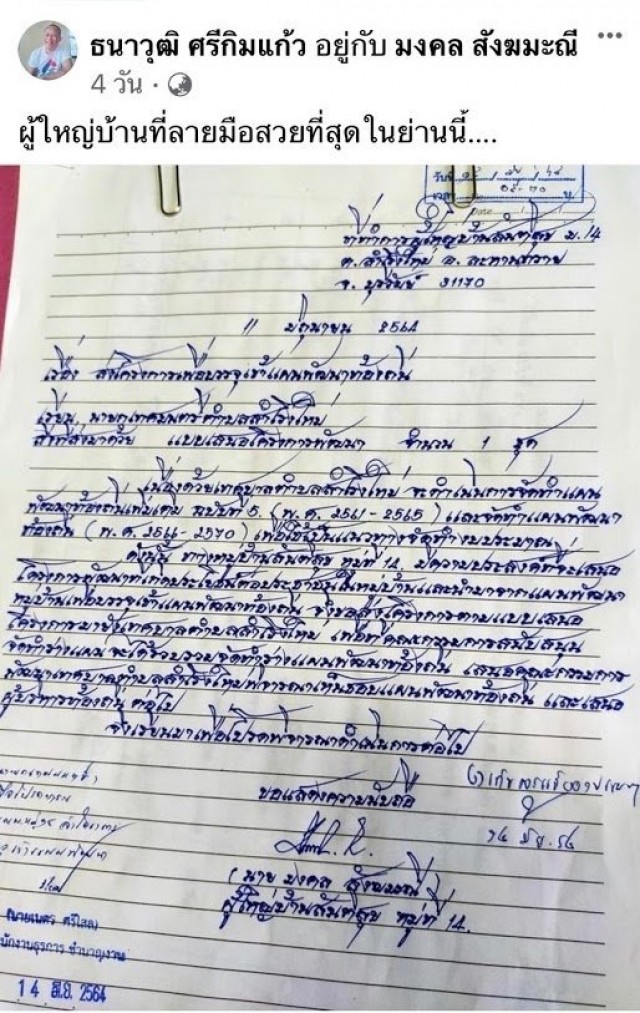 ธนาวุฒิ ศรีกิมแก้ว อยู่กับ มงคล สังฆมะณี
4 วัน
ผู้ใหญ่บ้านที่ลายมือสวยที่สุดในย่านนี้....
วันที่
Date
ที่ทำการผู้ใหญ่บ้านสันติสุข ม.14
ต.สำโรงใหม่ อ.ละหานทราย
จ.บุรีรัมย์ 31170
11 มิถุนายน 2564
เรื่อง ส่งโครงการเพื่อบรรจุเข้าแผนพัฒนาท้องถิ่น
เรียน นายกเทศมนตรีตำบลสำโรงใหม่
สิ่งที่ส่งมาด้วย แบบเสนอโครงการพัฒนา จำนวน 1 ชุด
เนื่องด้วยเทศบาลตำบลสำโรงใหม่ จะดำเนินการจัดทำแผน
พัฒนาท้องถิ่นเพิ่มเติม ฉบับที่ 5 (พ.ศ. 2561-2565) และจัดทำแผนพัฒนา
ท้องถิ่น (พ.ศ. 2566-2570) เพื่อใช้เป็นแนวทางจัดทำงบประมาณ
ดังนั้น ทางหมู่บ้านสันติสุข หมู่ที่ 14 มีความประสงค์ที่จะเสนอ
โครงการพัฒนาที่เกิดประโยชน์ต่อประชาชนในหมู่บ้านและนำมาจากแผนพัฒนา
หมู่บ้านเพื่อบรรจุเข้าแผนพัฒนาท้องถิ่น จึงขอส่งโครงการตามแบบเสนอ
โครงการมายังเทศบาลตำบลสำโรงใหม่ เพื่อให้คณะกรรมการสนับสนุน
จัดทำร่างแผน จะได้รวบรวมจัดทำร่างแผนพัฒนาท้องถิ่น เสนอคณะกรรมการ
พัฒนาเทศบาลตำบลสำโรงใหม่พิจารณาเห็นชอบแผนพัฒนาท้องถิ่น และเสนอ
ผู้บริหารท้องถิ่น ต่อไป
จึงเรียนมาเพื่อโปรดพิจารณาดำเนินการต่อไป
ขอแสดงความนับถือ
14 มิ.ย. 64
(นาย มงคล สังฆมณี)
ผู้ใหญ่บ้านสันติสุข หมู่ที่ 14.
ศรีโสล)
นักงานธุรการ ชำนาญงาน
14 มิ.ย. 2564